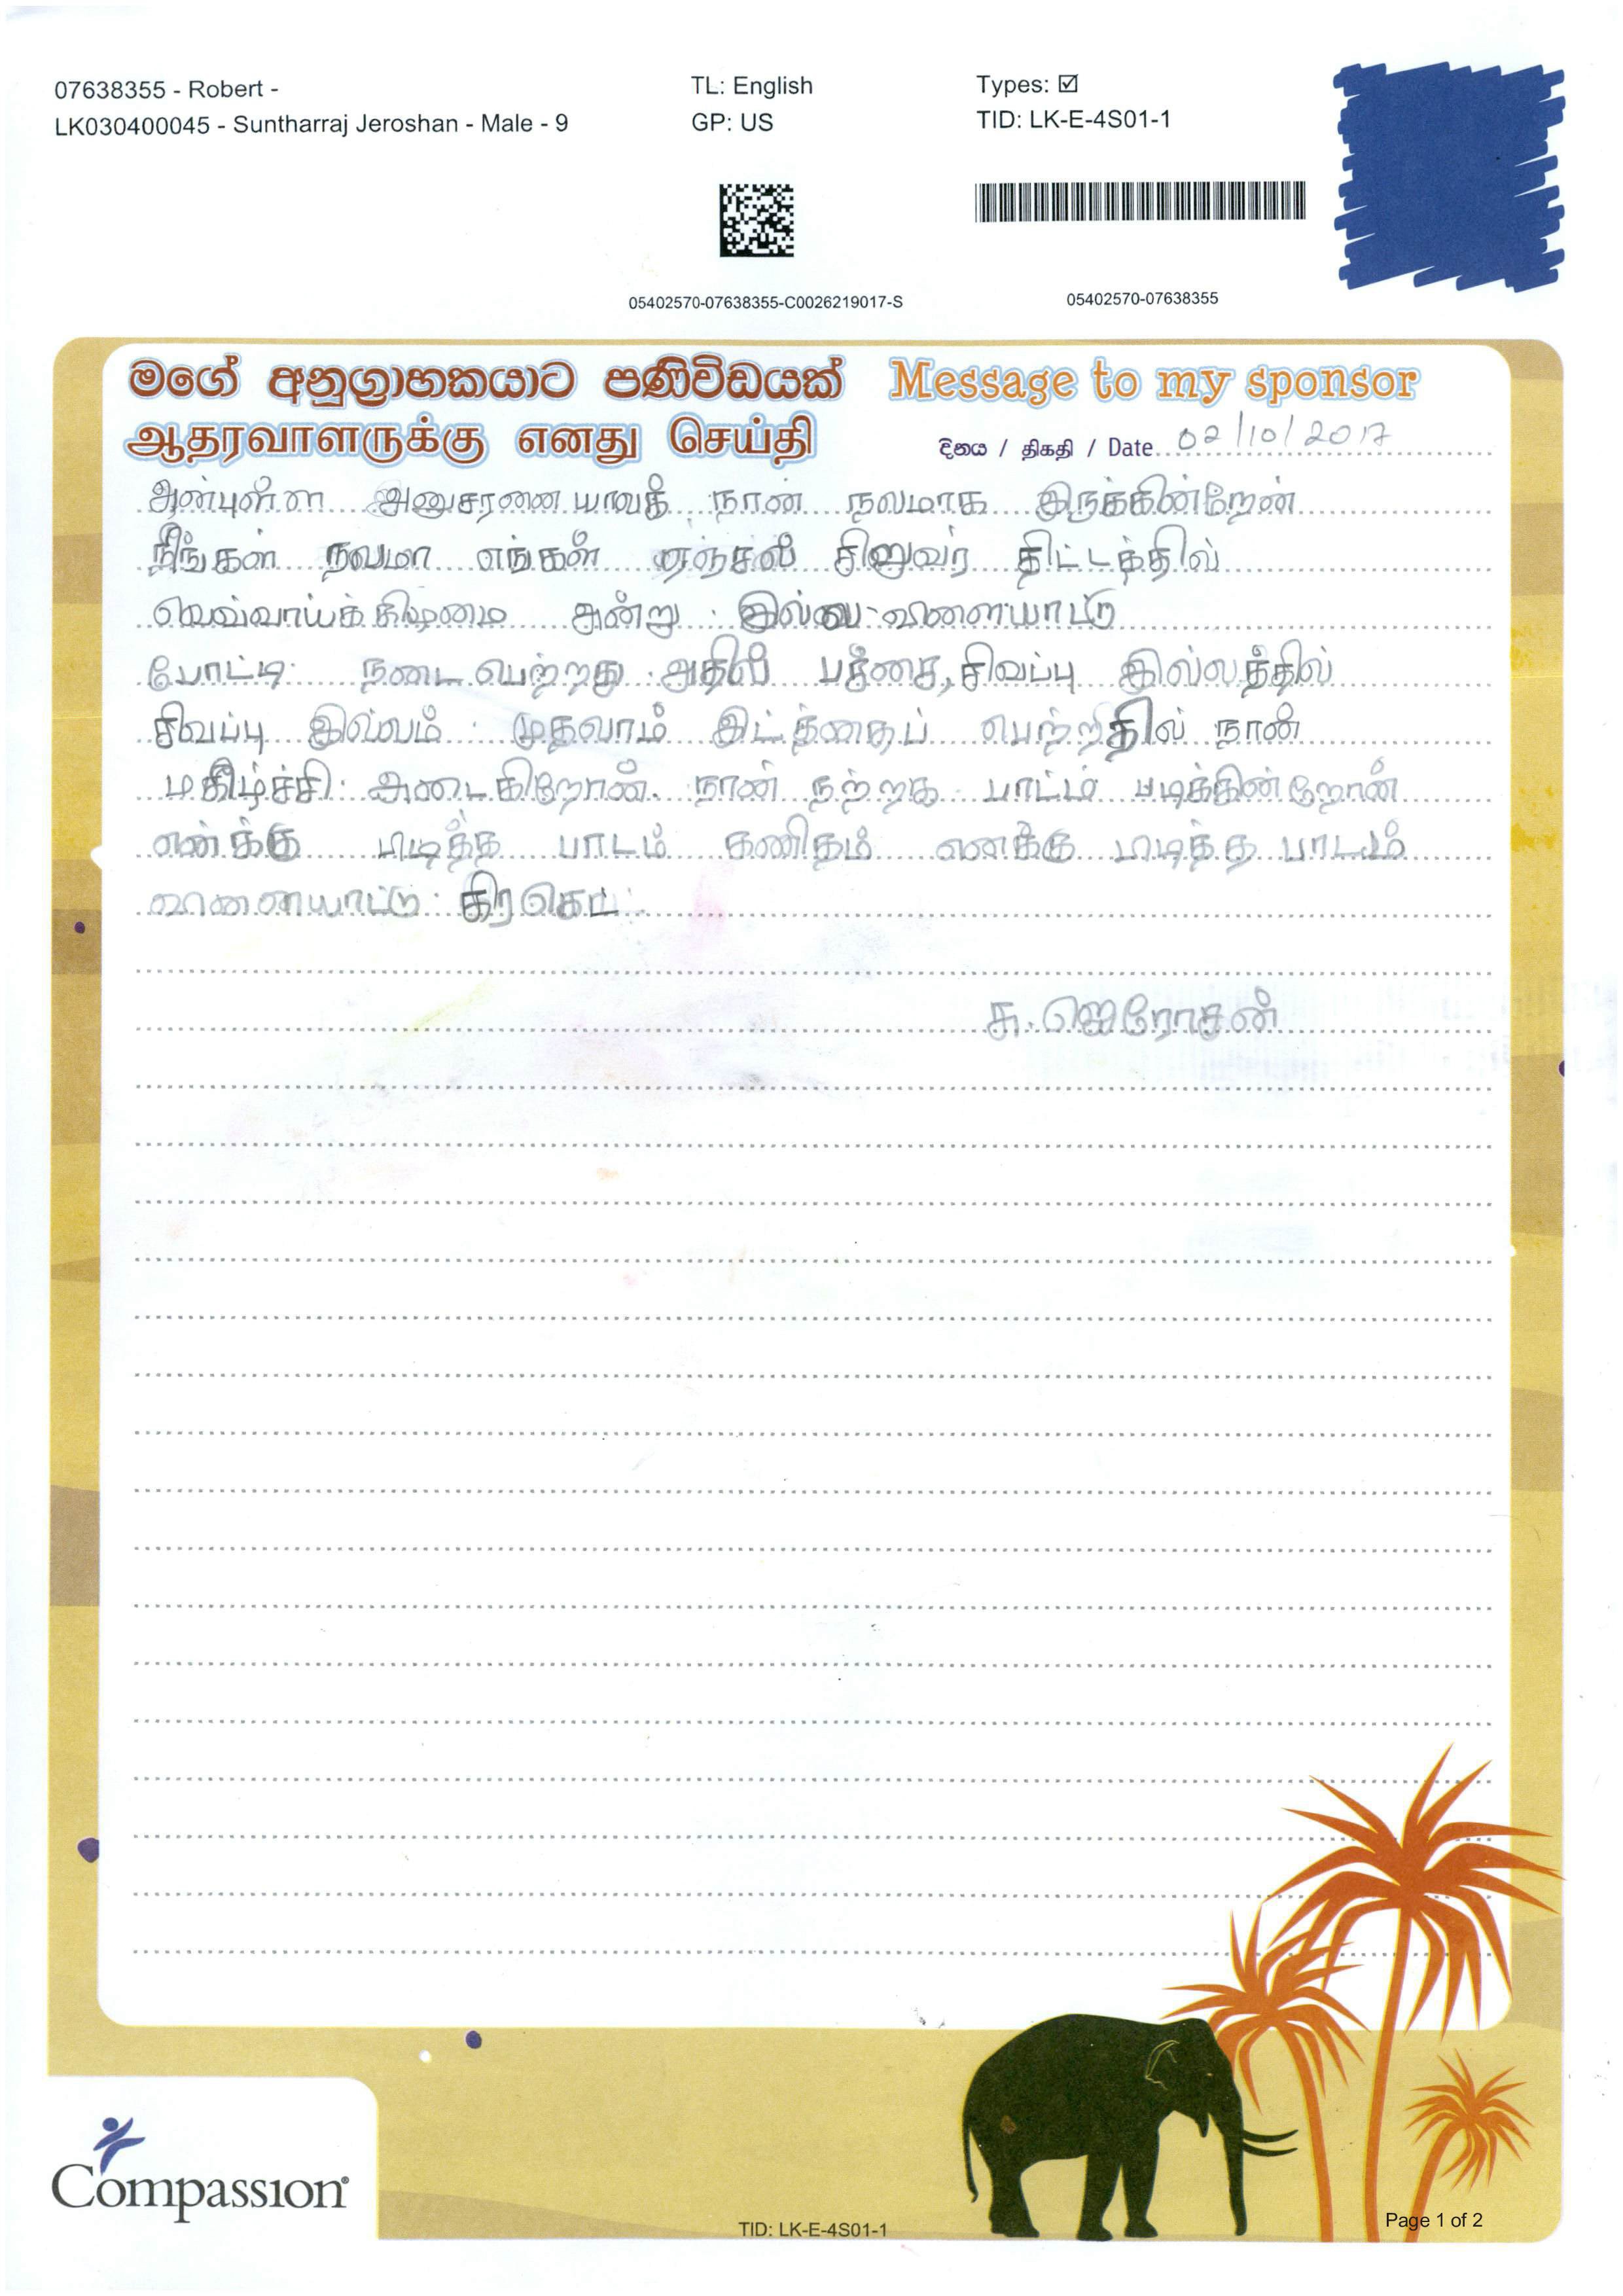 07638355 - Robert -
LK030400045 - Suntharraj Jeroshan - Male - 9
TL: English
GP: US
Types: ☑
TID: LK-E-4S01-1
05402570-07638355-C0026219017-S
05402570-07638355
මගේ අනුග්‍රාහකයාට පණිවිඩයක් Message to my sponsor
ஆதரவாளருக்கு எனது செய்தி
දිනය / திகதி / Date 02/10/2017
அன்புள்ள நான் நலமாக இருக்கின்றேன்
நீங்கள் நலமா எங்கள் சிறுவர் திட்டத்தில்
அன்று
போட்டி நடை பெற்றது அதில் சிவப்பு இல்லத்தில்
சிவப்பு இல்லம் முதலாம் நான்
நான் பாட்ம்
பாடம் கணிதம் எனக்கு பிடித்த பாடம்
விளையாட்டு
சு.ஜெரோசன்
Compassion®
TID: LK-E-4S01-1
Page 1 of 2